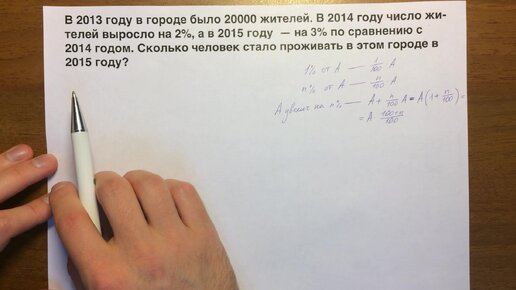 В 2013 году в городе было 20000 жителей. В 2014 году число жи-
телей выросло на 2%, а в 2015 году — на 3% по сравнению с
2014 годом. Сколько человек стало проживать в этом городе в
2015 году?
1% от A — 1/100 A
n% от A — n/100 A
A увелич на n% — A + n/100 A = A(1 + n/100) =
= A (100+n)/100